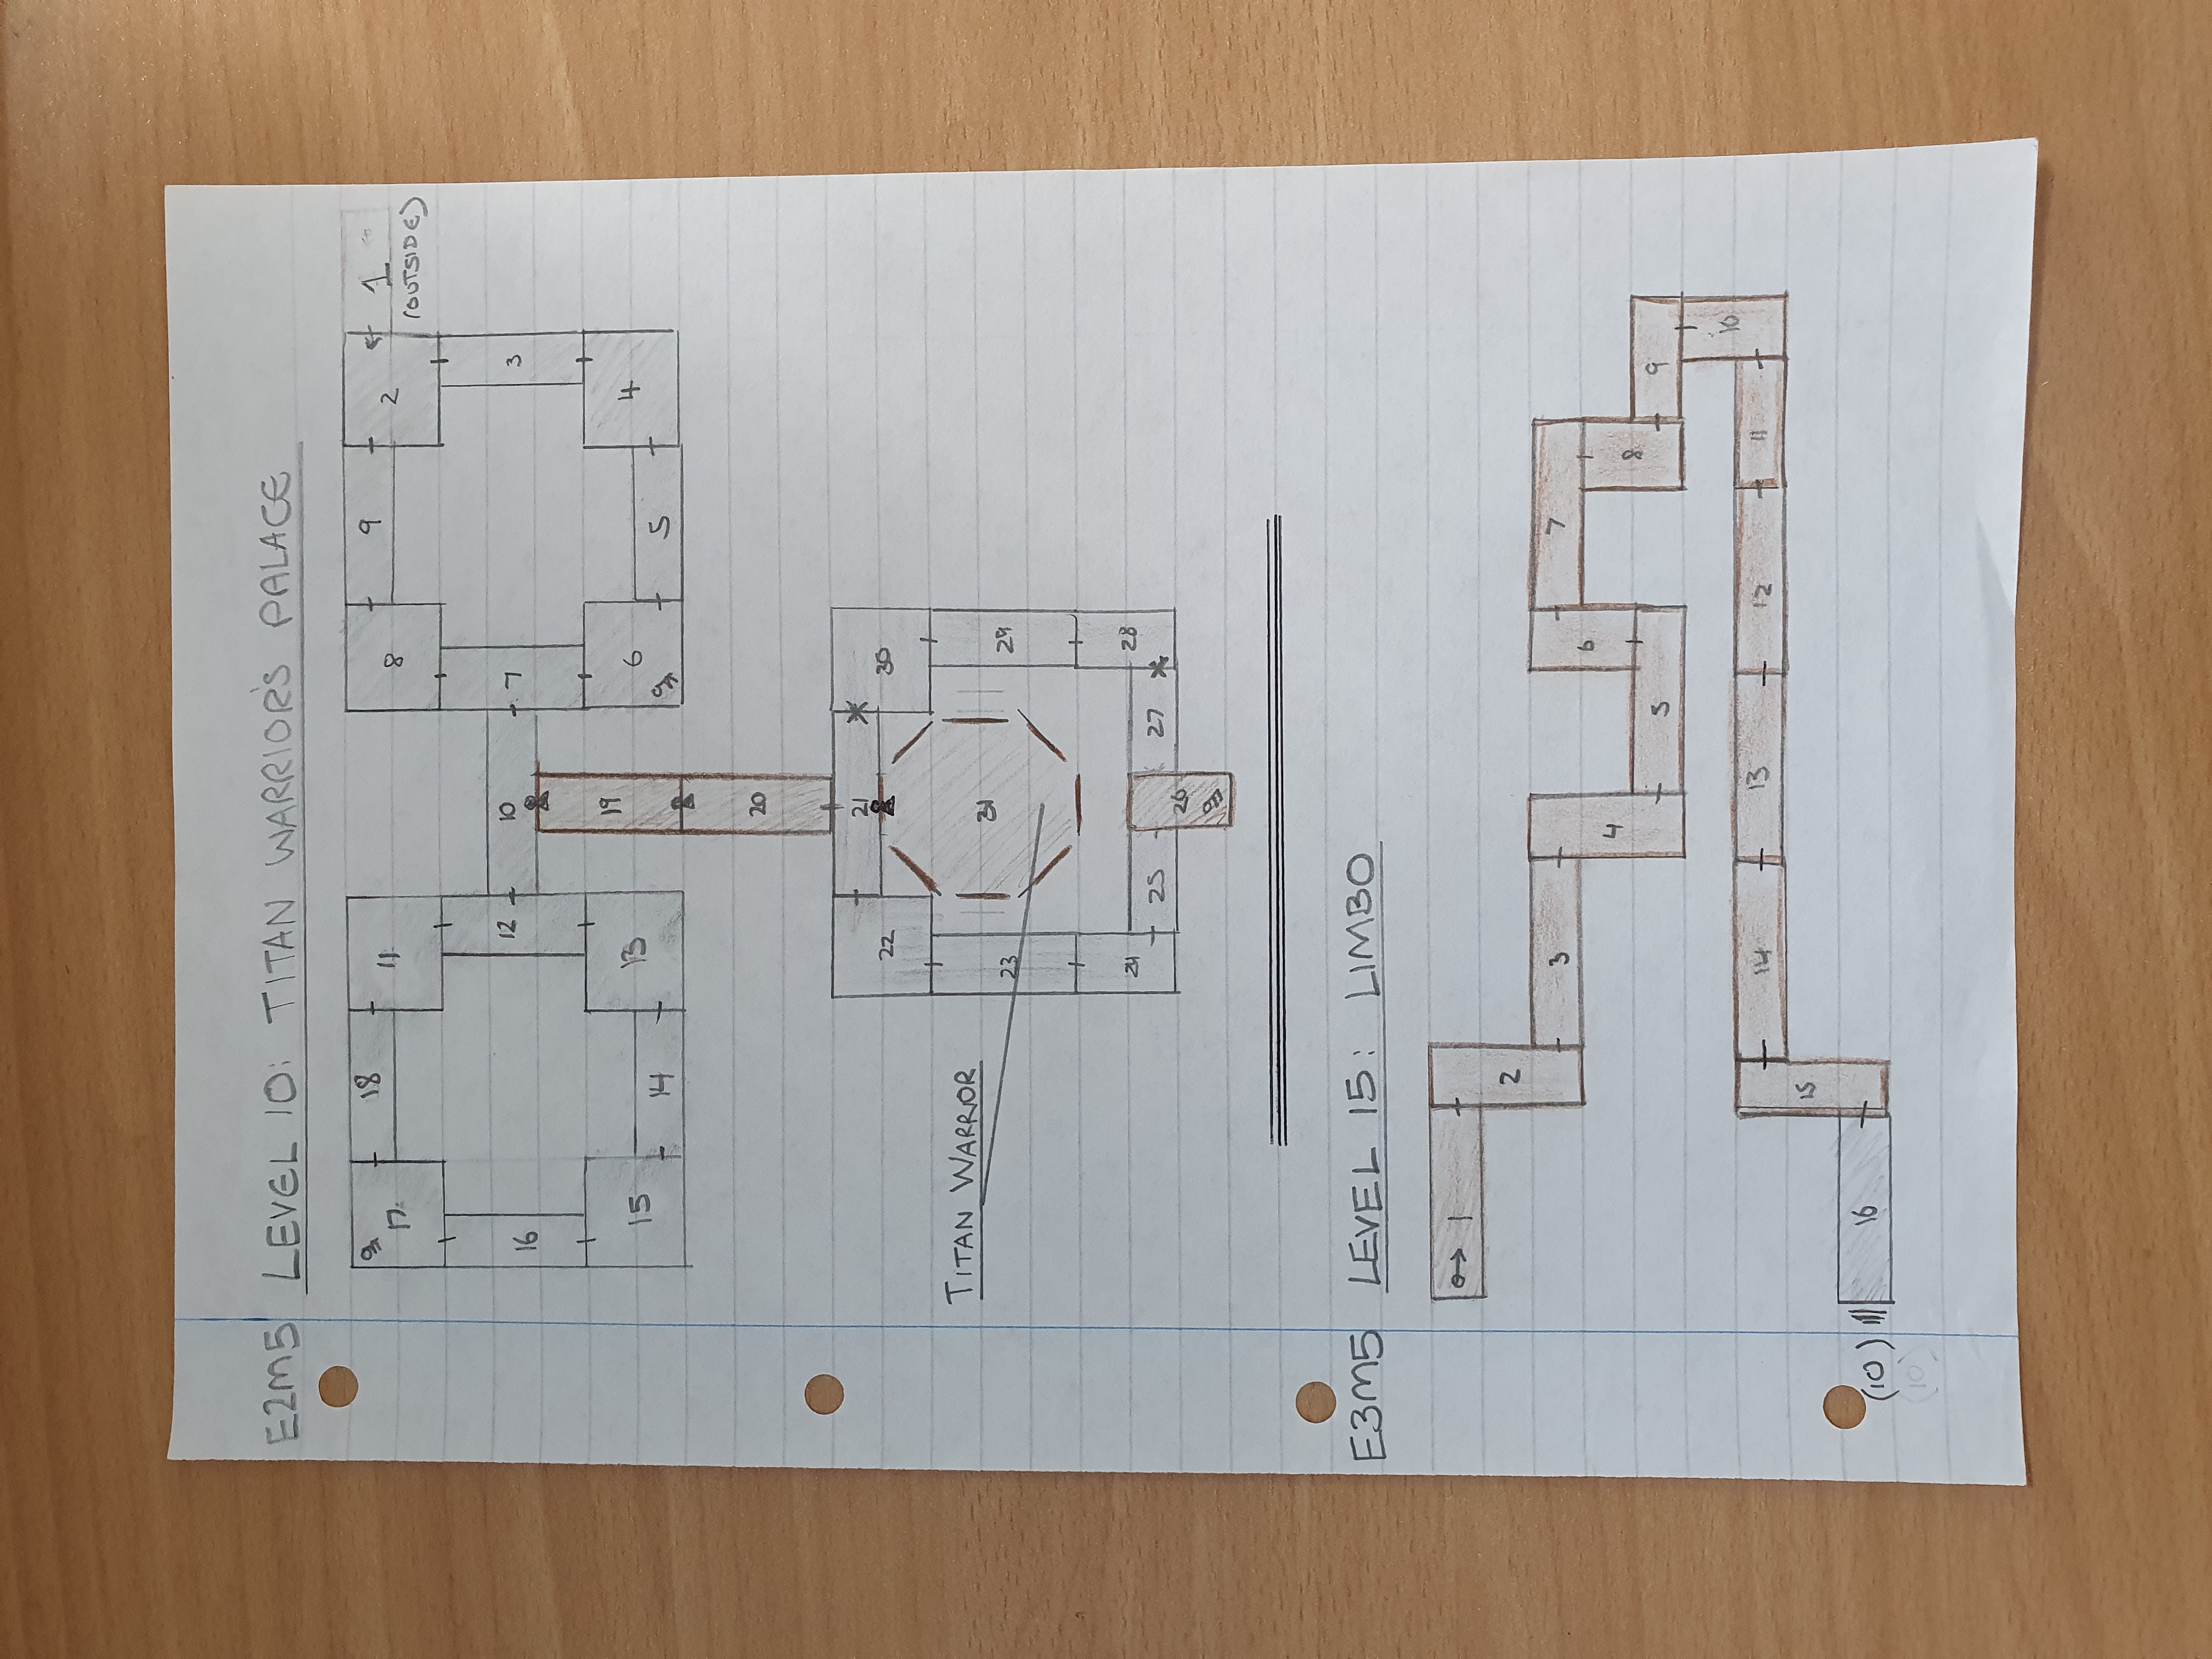 E2M5 LEVEL 10: TITAN WARRIOR'S PALACE
17 18 11 8 9 2 1
(OUTSIDE)
16 12 10 7 3
15 14 13 19 6 5 4
20
22 21 30
TITAN WARRIOR
23 31 29
24 25 26 27 28
E3M5 LEVEL 15: LIMBO
1
2
3 4 5 6 7 8 9
14 13 12 11 10
15
(10) 16
(10)